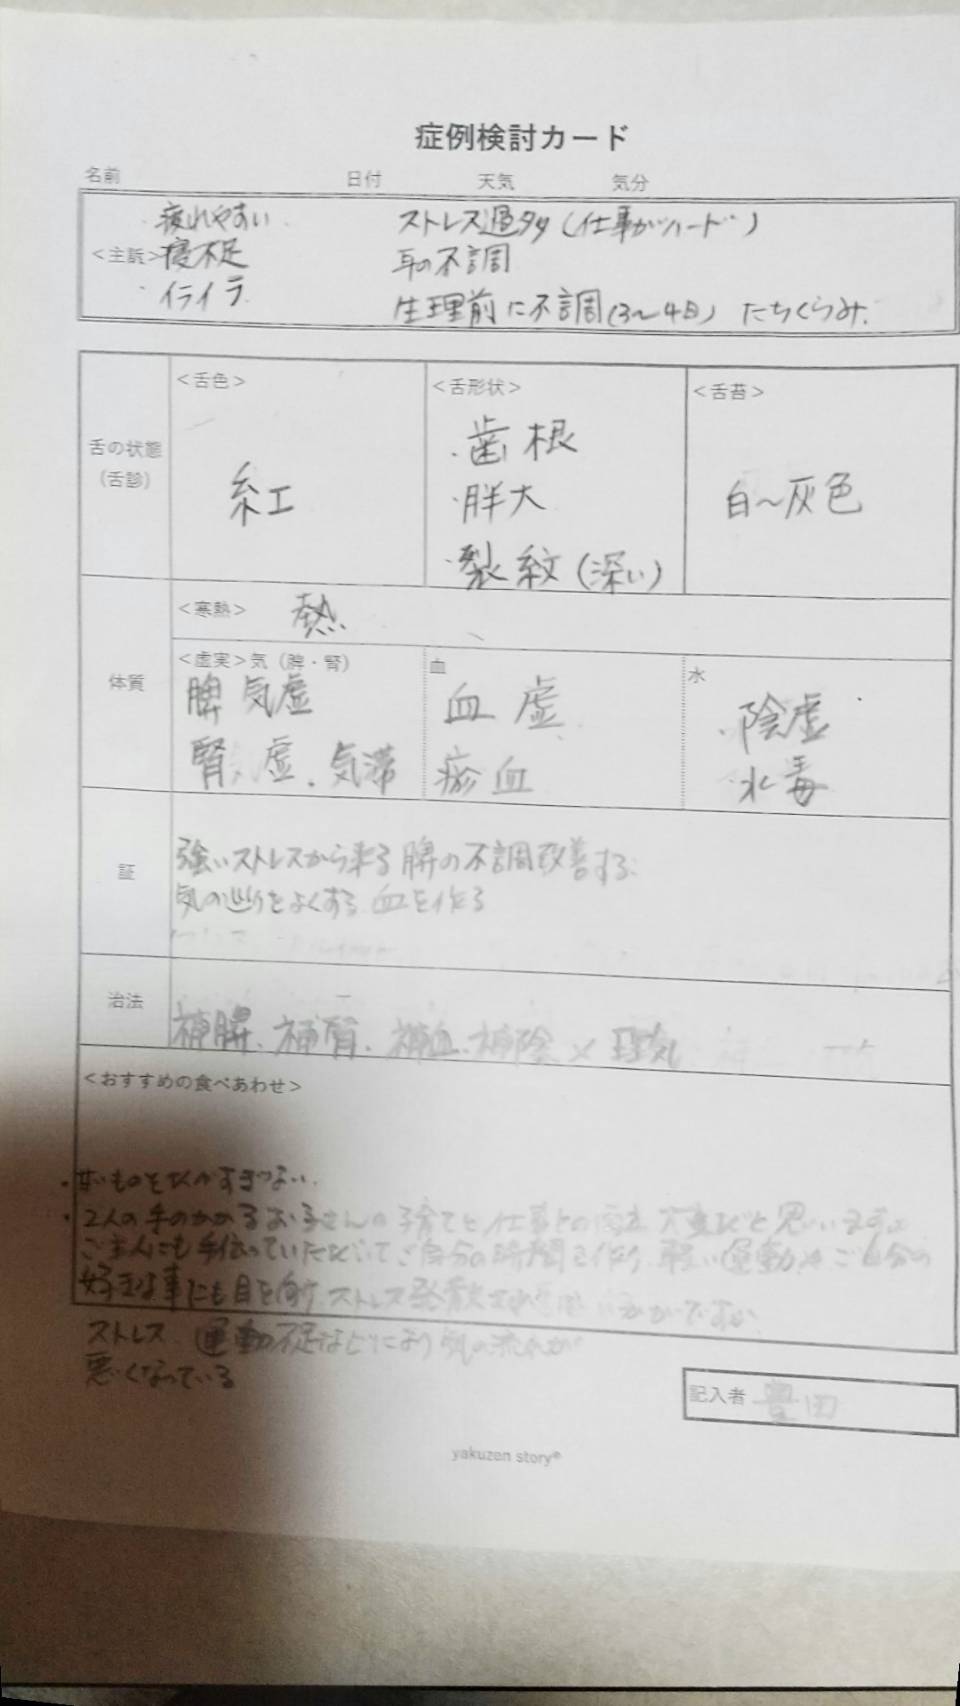 症例検討カード
名前 日付 天気 気分
・疲れやすい ストレス過多（仕事がハード）
<主訴> 寝不足 耳の不調
・イライラ 生理前に不調（3〜4日） たちくらみ
舌の状態（舌診）
<舌色>
紅
<舌形状>
・歯根
・胖大
・裂紋（深い）
<舌苔>
白〜灰色
体質
<寒熱> 熱
<虚実>気（脾・腎）
脾 気虚
腎 虚 . 気滞
血
血虚
瘀血
水
・陰虚
・水毒
証
強いストレスから来る 脾の不調改善する.
気の巡りをよくする 血を作る
治法
補脾、補腎、補血、補陰 × 理気
<おすすめの食べあわせ>
・甘いものをとりすぎない.
・2人の手のかかるお子さんの子育てと仕事との両立 大変だと思います。
ご主人にも手伝っていただいてご自分の時間を作り、軽い運動やご自分の
好きな事にも目を向け ストレス発散 いかがですか
ストレス 運動不足などにより気の流れが
悪くなっている
記入者 豊田
yakuzen story®